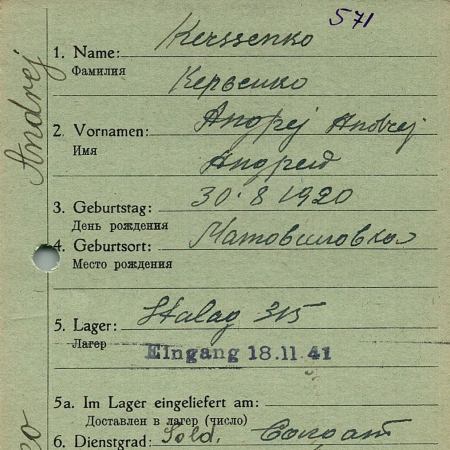 571
1. Name: Kerssenko
Фамилия Керсенко
2. Vornamen: Андрей Andrej
Имя Андрей
3. Geburtstag: 30.8 1920
День рождения
4. Geburtsort: Матовиловка
Место рождения
5. Lager: Stalag 315
Лагер
Eingang 18.11.41
5a. Im Lager eingeliefert am:
Доставлен в лагер (число)
6. Dienstgrad: Sold. Солдат
Andrej